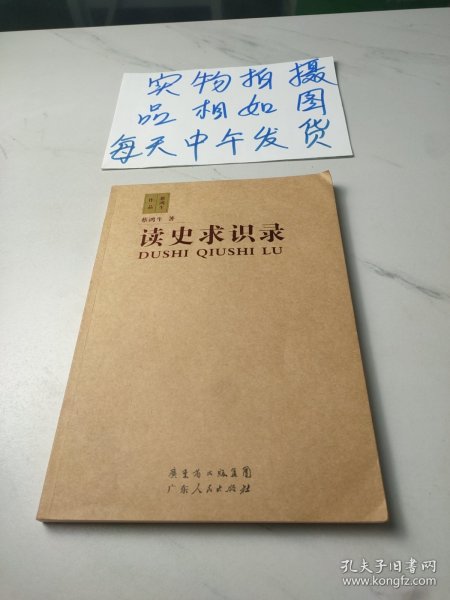 实物拍摄
品相如图
每天中午发货
蔡鸿生
作品
蔡鸿生 著
读史求识录
DUSHI QIUSHI LU
广东省出版集团
广东人民出版社
孔夫子旧书网
www.kongfz.com